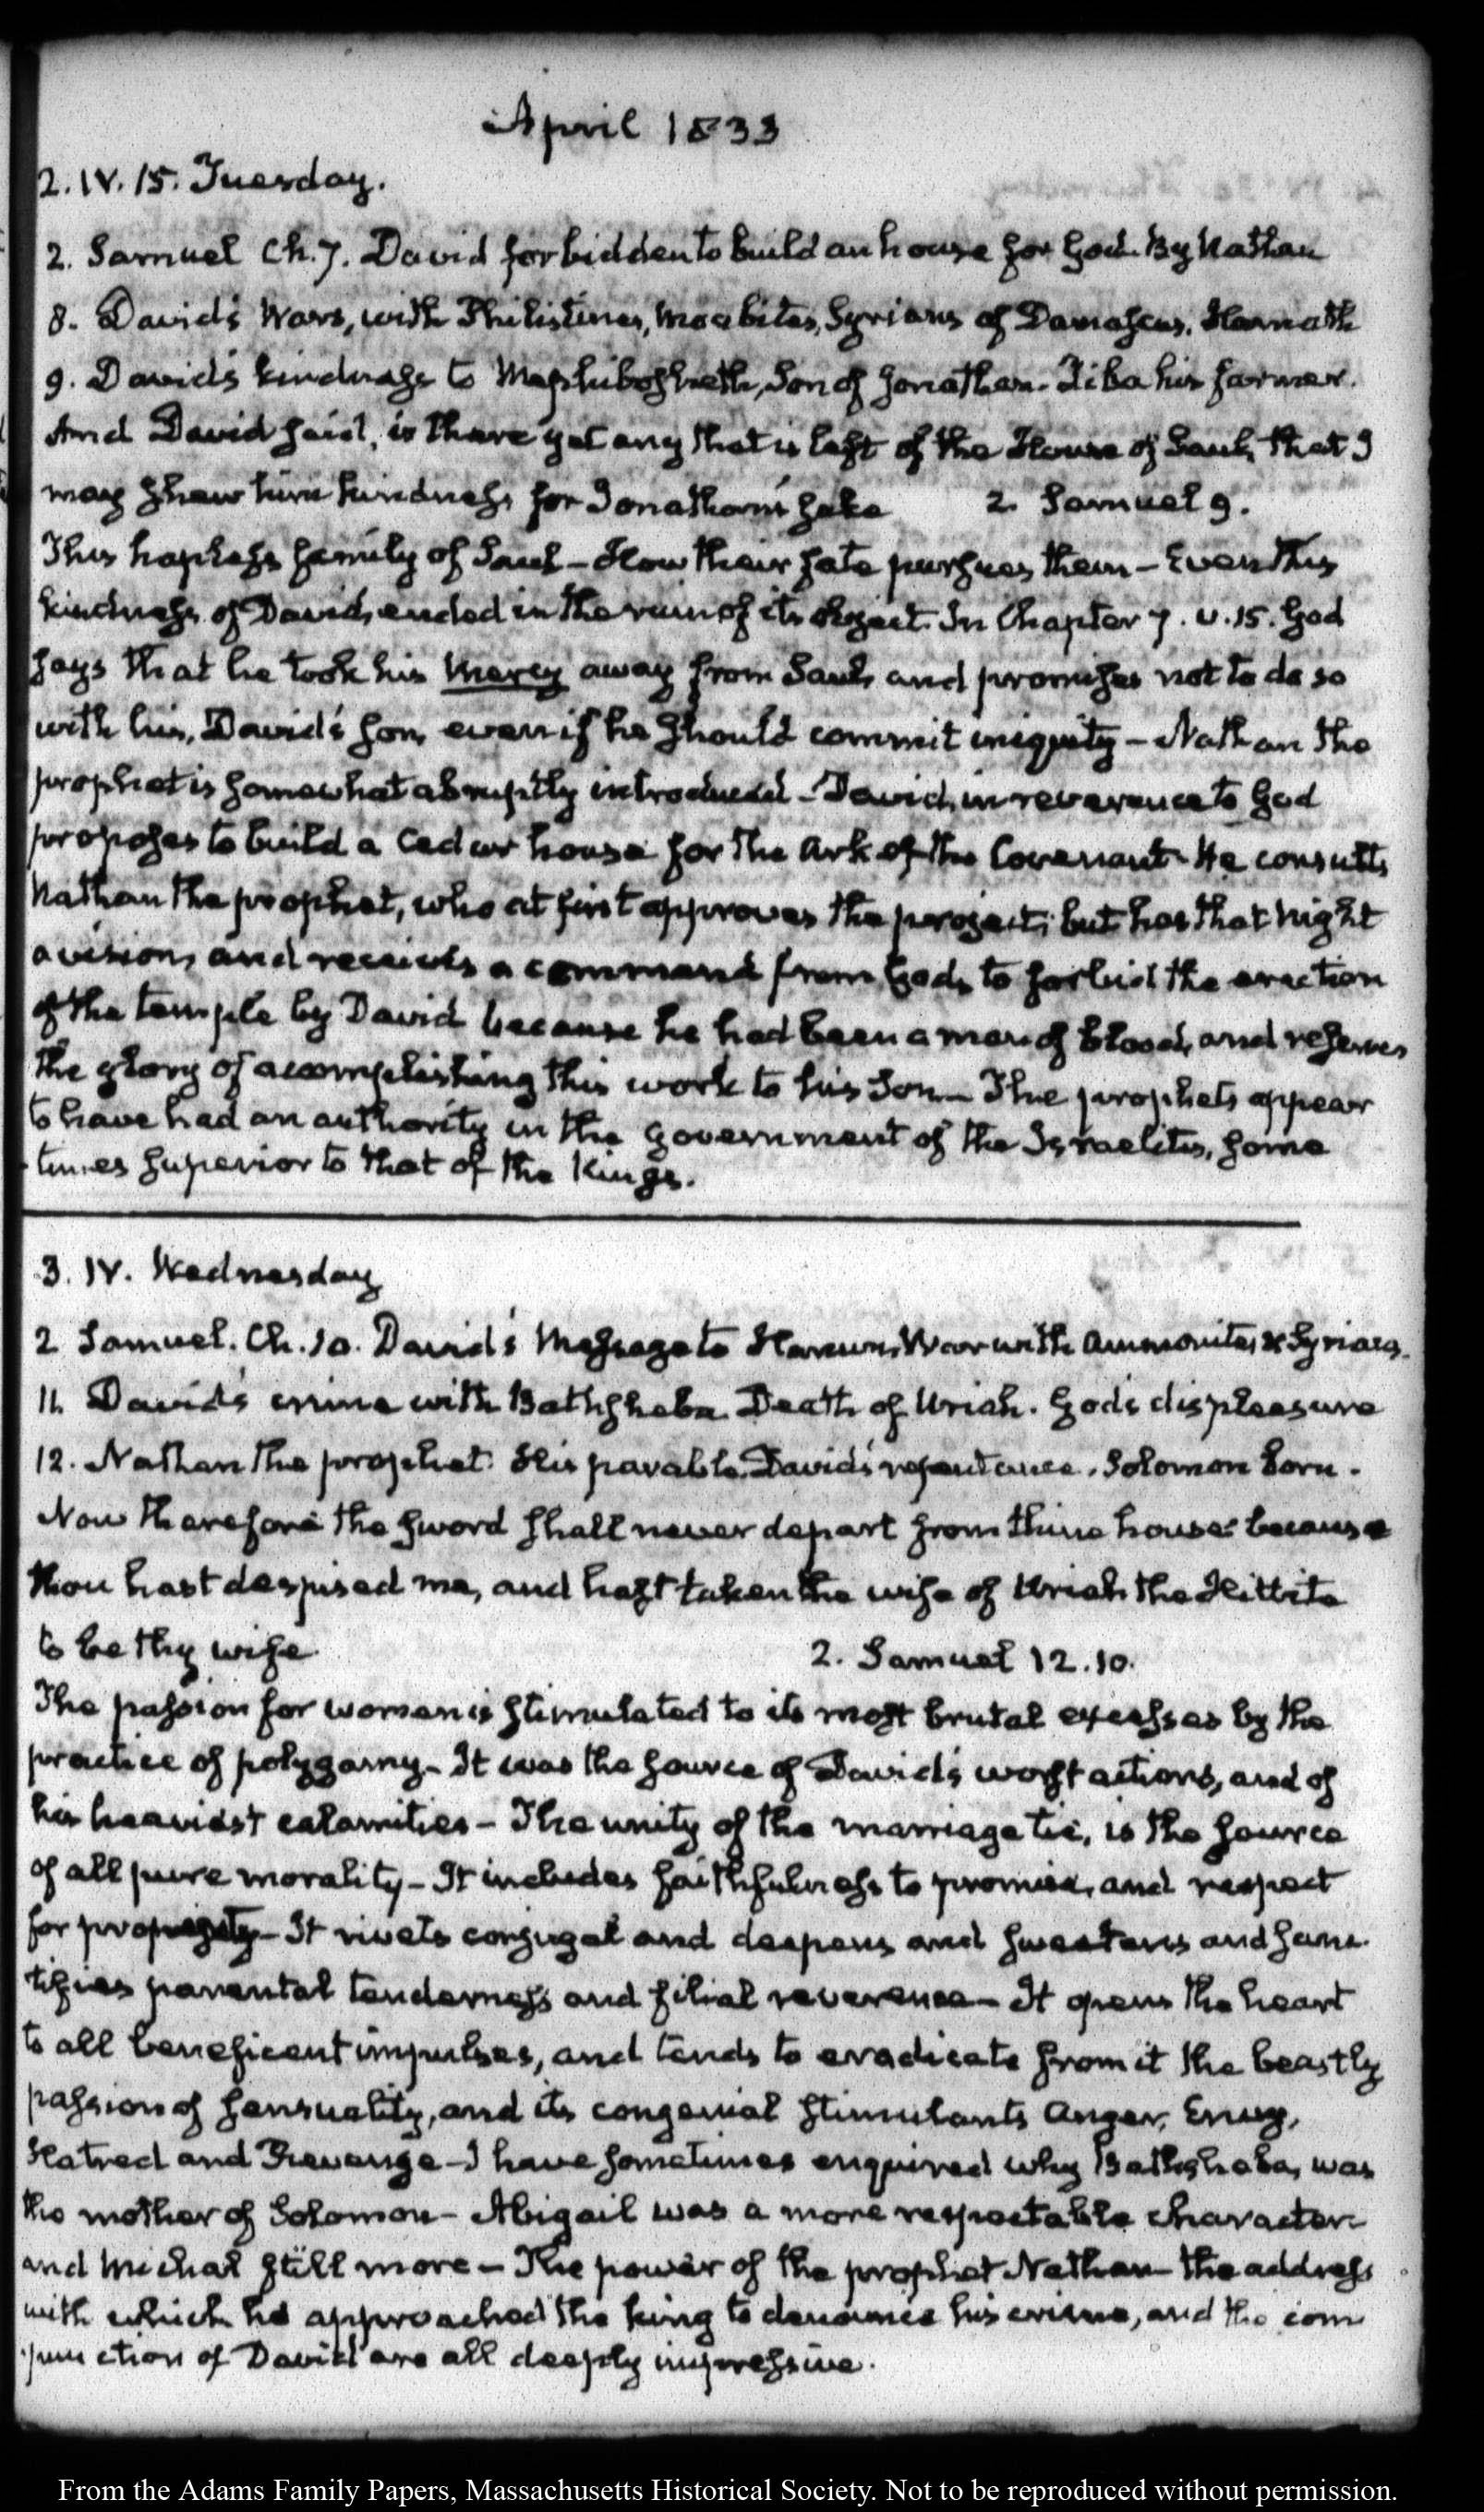 April 1833
2. IV. 15. Tuesday.
2. Samuel Ch. 7. David forbidden to build an house for God. By Nathan
8. David's Wars, with Philistines, Moabites, Syrians of Damascus, Hamath
9. David's kindness to Mephibosheth, Son of Jonathan. Ziba his farmer.
And David said, is there yet any that is left of the House of Saul, that I
may shew him kindness, for Jonathan's sake 2. Samuel 9.
This hapless family of Saul – How their fate pursues them – Even this
kindness of David, ended in the ruin of its object. In Chapter 7. v. 15. God
says that he took his mercy away from Saul, and promises not to do so
with his, David's son, even if he should commit iniquity – Nathan the
prophet is somewhat abruptly introduced – David, in reverence to God
proposes to build a Cedar house for the Ark of the Covenant – He consults
Nathan the prophet, who at first approves the project; but has that night
a vision, and receives a command from God, to forbid the erection
of the temple by David because he had been a man of blood, and reserves
the glory of accomplishing this work to his Son – The prophets appear
to have had an authority in the government of the Israelites, some
times superior to that of the Kings.
3. IV. Wednesday
2 Samuel. Ch. 10. David's Message to Hanun, War with Ammonites & Syrians.
11. David's crime with Bathsheba. Death of Uriah. God's displeasure
12. Nathan the prophet. His parable. David's repentance. Solomon born.
Now therefore the sword shall never depart from thine house: because
thou hast despised me, and hast taken the wife of Uriah the Hittite
to be thy wife 2. Samuel 12.10.
The passion for women is stimulated to its most brutal excesses by the
practice of polygamy – It was the source of David's worst actions, and of
his heaviest calamities – The unity of the marriage tie, is the source
of all pure morality – It includes faithfulness to promise, and respect
for property – It rivets conjugal and deepens and sweetens and sanc
tifies parental tenderness and filial reverence – It opens the heart
to all beneficent impulses, and tends to eradicate from it the beastly
passion of sensuality, and its congenial stimulants Anger, Envy,
Hatred and Revenge – I have sometimes enquired why Bathsheba, was
the mother of Solomon – Abigail was a more respectable character
and Michal still more – The power of the prophet Nathan – the address
with which he approached the king to denounce his crime, and the com
punction of David are all deeply impressive.
From the Adams Family Papers, Massachusetts Historical Society. Not to be reproduced without permission.